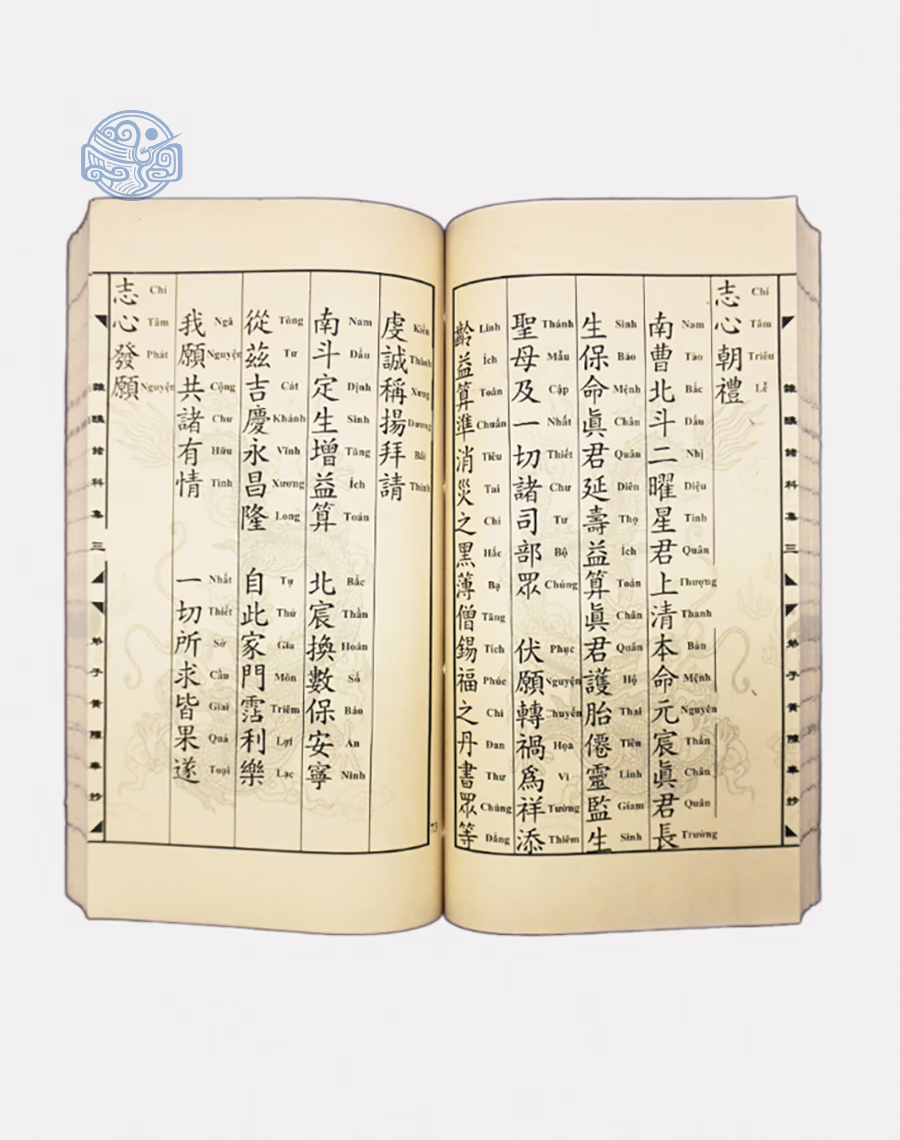 雜醮諸科集 三 弟子黃陳奉抄
志心朝禮
Chí Tâm Triêu Lễ
南曹北斗二曜星君上清本命元宸眞君長
Nam Tào Bắc Đẩu Nhị Diệu Tinh Quân Thượng Thanh Bản Mệnh Nguyên Thần Chân Quân Trường
生保命眞君延壽益算眞君護胎僊靈監生
Sinh Bảo Mệnh Chân Quân Diên Thọ Ích Toán Chân Quân Hộ Thai Tiên Linh Giám Sinh
聖母及一切諸司部眾 伏願轉禍爲祥添
Thánh Mẫu Cập Nhất Thiết Chư Tư Bộ Chúng Phục Nguyện Chuyển Họa Vi Tường Thiêm
齡益算準消災之黑薄僧錫福之丹書眾等
Linh Ích Toán Chuẩn Tiêu Tai Chi Hắc Bạ Tăng Tích Phúc Chi Đan Thư Chúng Đẳng
73
虔誠稱揚拜請
Kiền Thành Xưng Dương Bái Thỉnh
南斗定生增益算 北宸換數保安寧
Nam Đẩu Định Sinh Tăng Ích Toán Bắc Thần Hoán Số Bảo An Ninh
從茲吉慶永昌隆 自此家門霑利樂
Tòng Tư Cát Khánh Vĩnh Xương Long Tự Thử Gia Môn Triêm Lợi Lạc
我願共諸有情 一切所求皆果遂
Ngã Nguyện Cộng Chư Hữu Tình Nhất Thiết Sở Cầu Giai Quả Toại
志心發願
Chí Tâm Phát Nguyện
雜醮諸科集 三 弟子黃陳奉抄